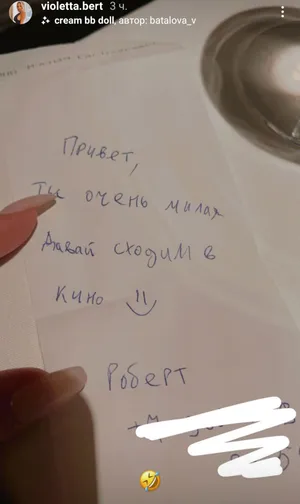 violetta.bert 3 ч.
cream bb doll, автор: batalova_v
Привет,
Ты очень милая
Давай сходим в
кино
Роберт